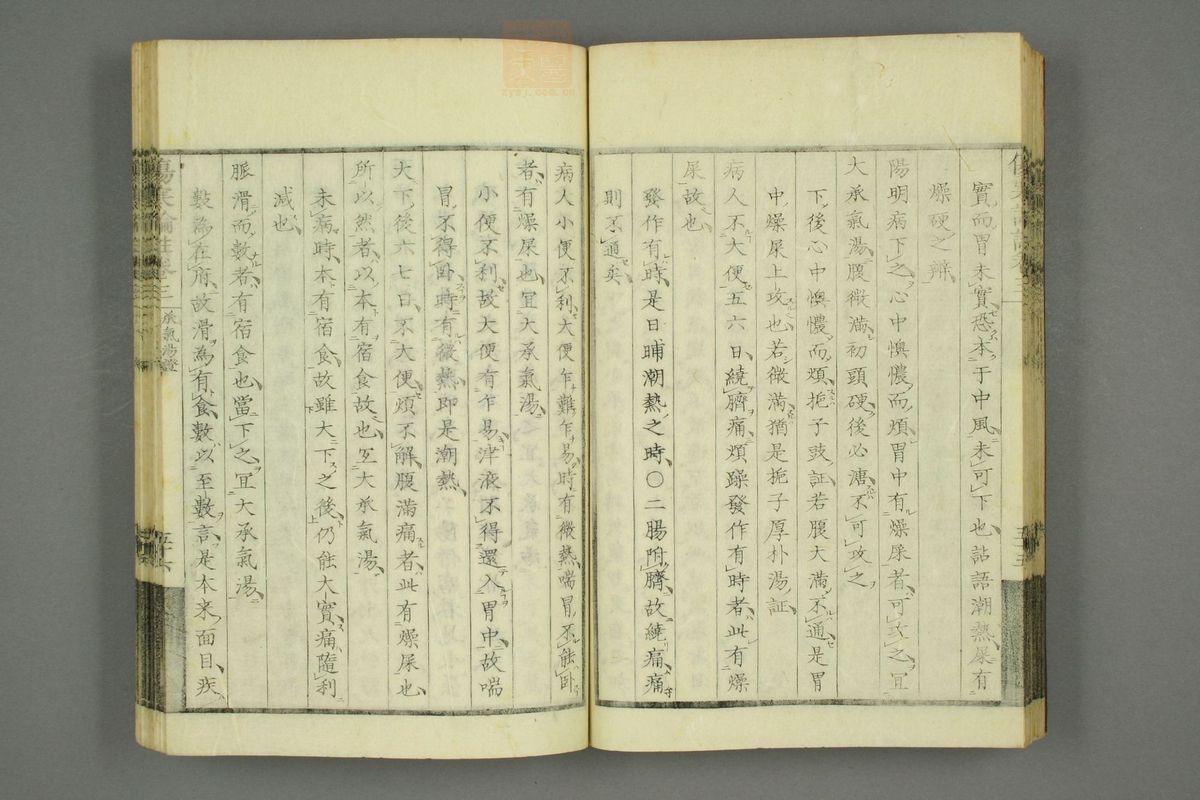 實而胃未實恐本于中風未可下也詀語潮熱屎有
燥硬之辯
陽明病下之心中懊憹而煩胃中有燥屎者可攻之宜
大承氣湯腹微滿初頭硬後必溏不可攻之
下後心中懊憹而煩梔子豉証若腹大滿不通是胃
中燥屎上攻也若微滿猶是梔子厚朴湯証
病人不大便五六日繞臍痛煩躁發作有時者此有燥
屎故也
發作有時是日晡潮熱之時〇二腸附臍故繞痛痛
則不通矣
病人小便不利大便乍難乍易時有微熱喘冒不能卧
者有燥屎也宜大承氣湯
小便不利故大便有乍易津液不得還入胃中故喘
冒不得卧時有微熱即是潮熱
大下後六七日不大便煩不解腹滿痛者此有燥屎也
所以然者以本有宿食故也宜大承氣湯
未病時本有宿食故雖大下之後仍能大實痛隨利
減也
脈滑而數者有宿食也當下之宜大承氣湯
數為在府故滑為有食數以至數言是本来面目疾
傷寒論註卷三 承氣湯證 五十六
zysj.com.cn